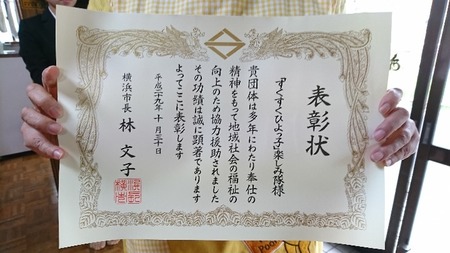 表彰状
すくすくひよっ子楽しみ隊様
貴団体は多年にわたり奉仕の
精神をもって地域社会の福祉の
向上のため協力援助されました
その功績は誠に顕著であります
よってここに表彰します
平成二十九年十月三十日
横浜市長 林文子